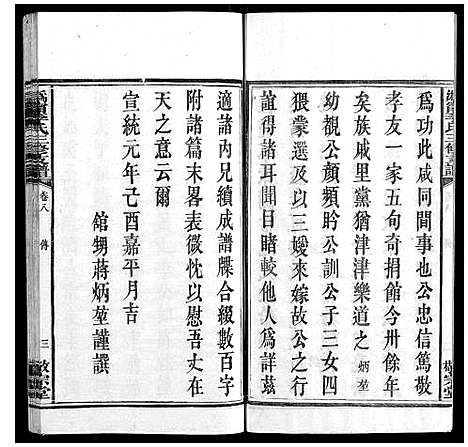 為功此咸同間事也公忠信篤
孝友一家五旬奇捐館今卅餘年
矣族戚里黨猶津津樂道之炳堃
幼覩公顏頻聆公訓公子三女四
猥蒙選及以三媛來嫁故公之行
誼得於耳聞目睹較他人為詳茲
適諸內兄續成譜牒合綴數百字
附諸篇末畧表微忱以慰吾丈在
天之意云爾
宣統元年己酉嘉平月吉
館甥蔣炳堃謹譔
氏三修支譜
卷八
傳
三
敬宗堂